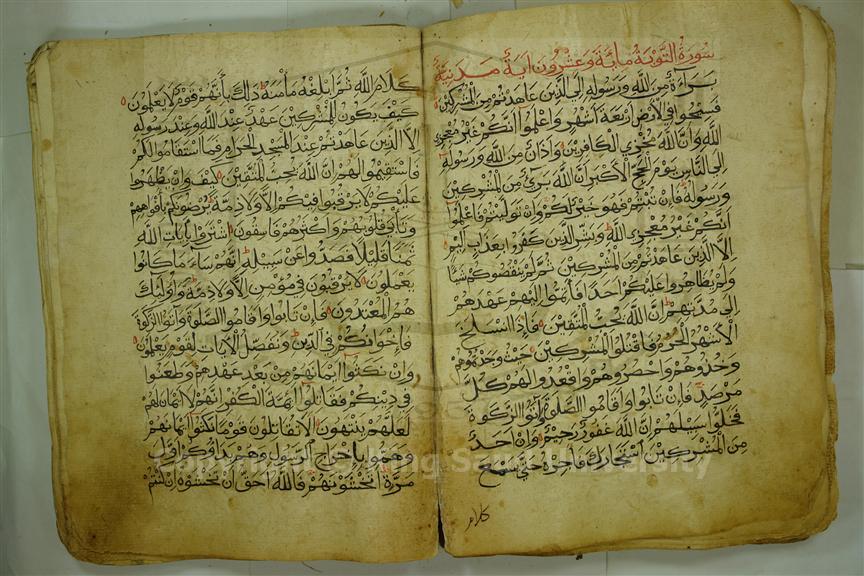 سورة التوبة مائة وعشرون اية مدنية
براءة من الله ورسوله الى الذين عاهدتم من المشركين
فسيحوا في الارض اربعة اشهر واعلموا انكم غير معجزي
الله وان الله مخزي الكافرين واذان من الله ورسوله
الى الناس يوم الحج الاكبر ان الله بريء من المشركين
ورسوله فان تبتم فهو خير لكم وان توليتم فاعلموا
انكم غير معجزي الله وبشر الذين كفروا بعذاب اليم
الا الذين عاهدتم من المشركين ثم لم ينقصوكم شيئا
ولم يظاهروا عليكم احدا فاتموا اليهم عهدهم
الى مدتهم ان الله يحب المتقين فاذا انسلخ
الاشهر الحرم فاقتلوا المشركين حيث وجدتموهم
وخذوهم واحصروهم واقعدوا لهم كل
مرصد فان تابوا واقاموا الصلوة وآتوا الزكوة
فخلوا سبيلهم ان الله غفور رحيم وان احد
من المشركين استجارك فاجره حتى يسمع
كلام
كلام الله ثم ابلغه مأمنه ذلك بأنهم قوم لا يعلمون
كيف يكون للمشركين عهد عند الله وعند رسوله
الا الذين عاهدتم عند المسجد الحرام فما استقاموا لكم
فاستقيموا لهم ان الله يحب المتقين كيف وان يظهروا
عليكم لا يرقبوا فيكم الا ولا ذمة يرضونكم بأفواههم
وتأبى قلوبهم واكثرهم فاسقون اشتروا بآيات الله
ثمنا قليلا فصدوا عن سبيله انهم ساء ما كانوا
يعملون لا يرقبون في مؤمن الا ولا ذمة واوليك
هم المعتدون فان تابوا واقاموا الصلوة وآتوا الزكوة
فاخوانكم في الدين ونفصل الآيات لقوم يعلمون
وان نكثوا ايمانهم من بعد عهدهم وطعنوا
في دينكم فقاتلوا ائمة الكفر انهم لا ايمان لهم
لعلهم ينتهون الا تقاتلون قوما نكثوا ايمانهم
وهموا باخراج الرسول وهم بدؤكم اول
مرة اتخشونهم فالله احق ان تخشوه ان كنتم